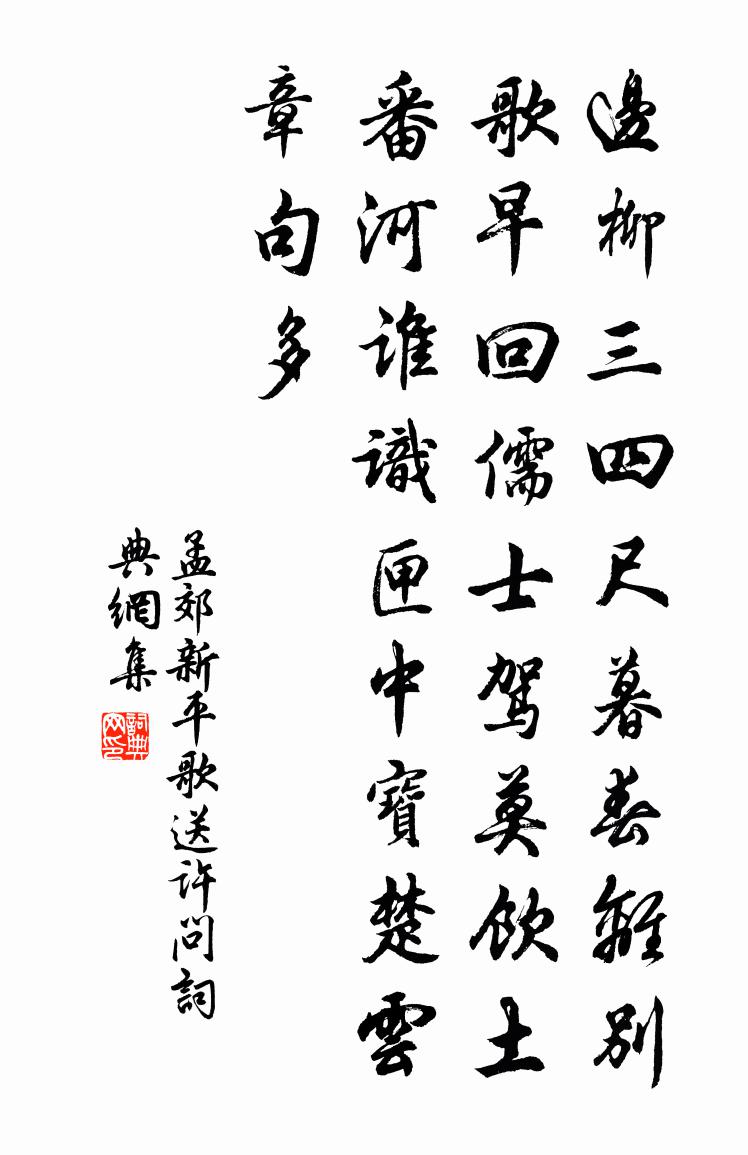 邊柳三四尺暮春離別
歌早回儒士駕莫飲土
番河誰識匣中寶楚雲
章句多
孟郊新平歌送許問詞
典網集
詞典網印